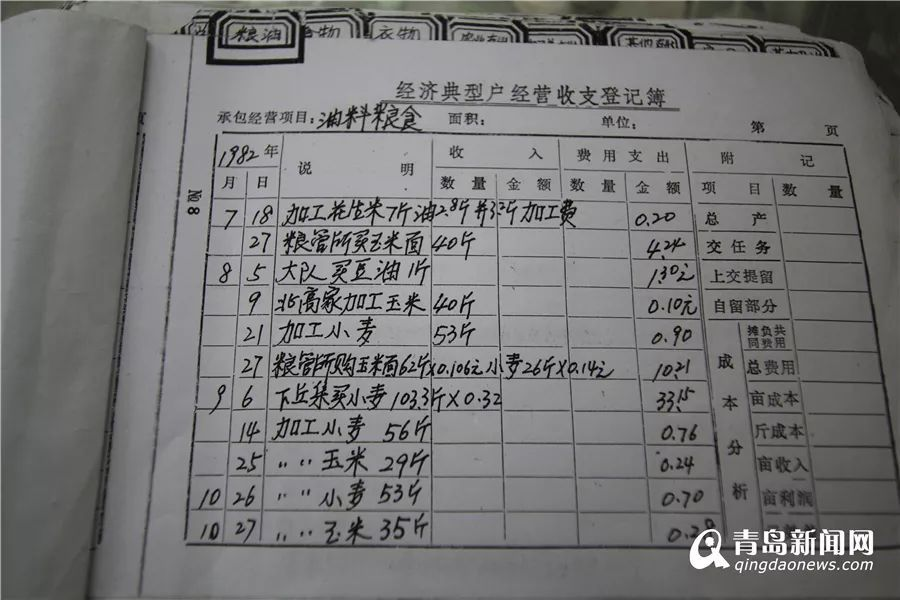 粮油 食物 衣物
经济典型户经营收支登记簿
承包经营项目:油料粮食 面积: 单位: 第 页
1982年 说明 收入 费用支出 附记
月 日 数量 金额 数量 金额 项目 数量
7 18 加工花生米7斤油2.8斤并3.2斤加工费 0.20 总产
27 粮管所买玉米面 40斤 4.24 交任务
8 5 大队买豆油1斤 1.30元 上交提留
9 北高家加工玉米 40斤 0.10元 自留部分
21 加工小麦 53斤 0.90 摊负共同费用
27 粮管所购玉米面62斤×0.106元 小麦26斤×0.14元 10.21 总费用
9 6 下丘集买小麦 103.3斤×0.32 33.15 亩成本
14 加工小麦 56斤 0.76 斤成本
25 〃 〃 玉米 29斤 0.24 亩收入
10 26 〃 〃 小麦 53斤 0.70 亩利润
10 27 〃 〃 玉米 35斤
成本分析
№8
青岛新闻网
qingdaonews.com